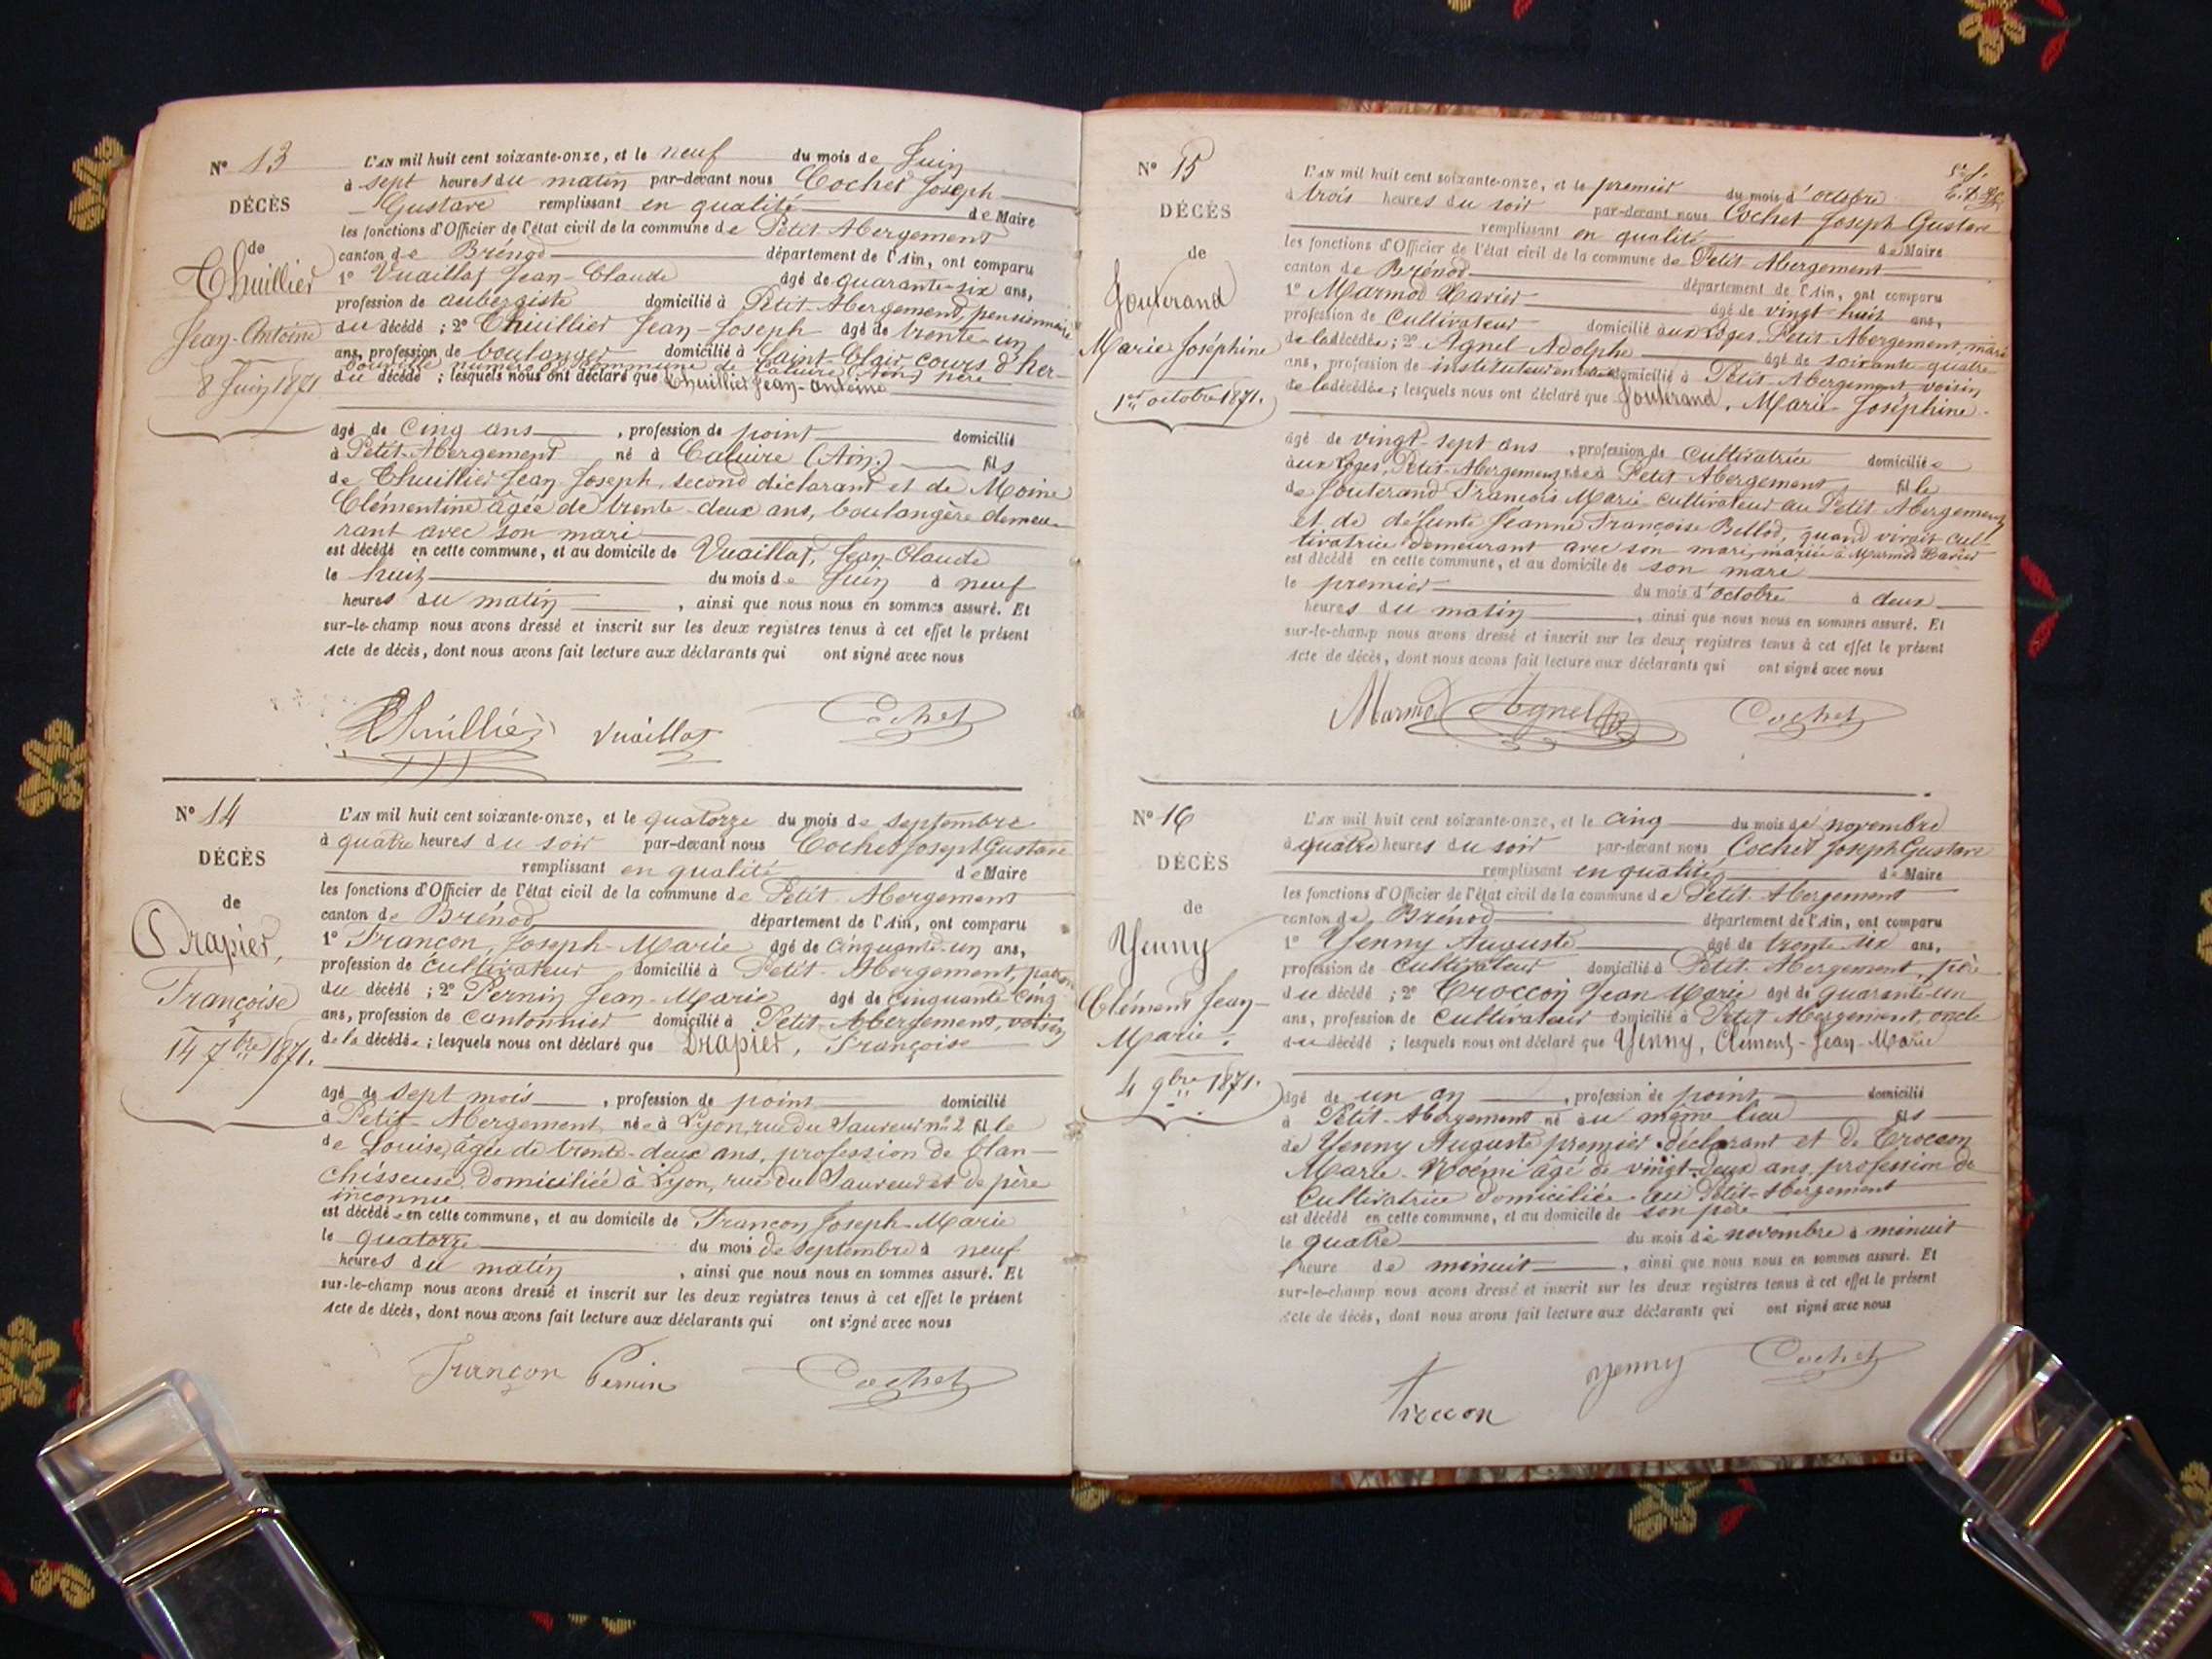 N° 13
DÉCÈS
de
Thuillier
Jean-Antoine
8 Juin 1871
L'AN mil huit cent soixante-onze, et le neuf du mois de Juin
à sept heures du matin par-devant nous Cochet Joseph
Gustave remplissant en qualité de Maire
les fonctions d'Officier de l'état civil de la commune de Petit Abergement
canton de Brénod département de l'Ain, ont comparu
1° Vuaillat Jean-Claude âgé de quarante-six ans,
profession de aubergiste domicilié à Petit-Abergement, pensionnaire
du décédé ; 2° Thuillier Jean-Joseph âgé de trente-un
ans, profession de boulanger domicilié à Saint-Clair cours d'her-
bouville numéro commune de Caluire père
du décédé ; lesquels nous ont déclaré que Thuillier Jean-Antoine
âgé de cinq ans , profession de point domicilié
à Petit-Abergement né à Caluire (Ain) fils
de Thuillier Jean-Joseph, second déclarant et de Moine
Clémentine âgée de trente-deux ans, boulangère demeu-
rant avec son mari
est décédé en cette commune, et au domicile de Vuaillat, Jean-Claude
le huit du mois de Juin à neuf
heures du matin , ainsi que nous nous en sommes assuré. Et
sur-le-champ nous avons dressé et inscrit sur les deux registres tenus à cet effet le présent
acte de décès, dont nous avons fait lecture aux déclarants qui ont signé avec nous
Thuillier Vuaillat Cochet
N° 14
DÉCÈS
de
Drapier,
Françoise
14 7bre 1871.
L'AN mil huit cent soixante-onze, et le quatorze du mois de septembre
à quatre heures du soir par-devant nous Cochet Joseph Gustave
remplissant en qualité de Maire
les fonctions d'Officier de l'état civil de la commune de Petit-Abergement
canton de Brénod département de l'Ain, ont comparu
1° Françon, Joseph-Marie âgé de cinquante-un ans,
profession de cultivateur domicilié à Petit-Abergement, patron
du décédé ; 2° Pernin Jean-Marie âgé de cinquante cinq
ans, profession de cantonnier domicilié à Petit-Abergement, voisin
de la décédée ; lesquels nous ont déclaré que Drapier, Françoise
âgé de sept mois , profession de point domicilié
à Petit-Abergement, née à Lyon, rue du Sauveur n° 2 fille
de Louise, âgée de trente-deux ans, profession de blan-
chisseuse, domiciliée à Lyon, rue du Sauveur et de père
inconnu
est décédée en cette commune, et au domicile de Françon Joseph-Marie
le quatorze du mois de septembre à neuf
heures du matin , ainsi que nous nous en sommes assuré. Et
sur-le-champ nous avons dressé et inscrit sur les deux registres tenus à cet effet le présent
acte de décès, dont nous avons fait lecture aux déclarants qui ont signé avec nous
Françon Pernin Cochet
N° 15
DÉCÈS
de
Jouterand
Marie Joséphine
1er octobre 1871.
L'AN mil huit cent soixante-onze, et le premier du mois d'octobre
à trois heures du soir par-devant nous Cochet Joseph Gustave
remplissant en qualité de Maire
les fonctions d'Officier de l'état civil de la commune de Petit-Abergement
canton de Brénod département de l'Ain, ont comparu
1° Marmod Xavier âgé de vingt-huit ans,
profession de cultivateur domicilié aux Loges, Petit-Abergement, mari
de la décédée ; 2° Agnel Adolphe âgé de soixante-quatre
ans, profession de instituteur domicilié à Petit-Abergement, voisin
de la décédée ; lesquels nous ont déclaré que Jouterand, Marie Joséphine
âgé de vingt-sept ans , profession de cultivatrice domiciliée
aux Loges, Petit-Abergement née à Petit Abergement, fille
de Jouterand François Marie cultivateur au Petit Abergement
et de défunte Jeanne Françoise Bellod, quand vivait cul-
tivatrice demeurant avec son mari, mariée à Marmod Xavier
est décédé en cette commune, et au domicile de son mari
le premier du mois d'octobre à deux
heures du matin , ainsi que nous nous en sommes assuré. Et
sur-le-champ nous avons dressé et inscrit sur les deux registres tenus à cet effet le présent
acte de décès, dont nous avons fait lecture aux déclarants qui ont signé avec nous
Marmod Agnel Cochet
N° 16
DÉCÈS
de
Yenny
Clément Jean-
Marie.
4 9bre 1871.
L'AN mil huit cent soixante-onze, et le cinq du mois de novembre
à quatre heures du soir par-devant nous Cochet Joseph Gustave
remplissant en qualité de Maire
les fonctions d'Officier de l'état civil de la commune de Petit-Abergement
canton de Brénod département de l'Ain, ont comparu
1° Yenny Auguste âgé de trente six ans,
profession de cultivateur domicilié à Petit-Abergement, père
du décédé ; 2° Troccon Jean Marie âgé de quarante-un
ans, profession de cultivateur domicilié à Petit Abergement, oncle
du décédé ; lesquels nous ont déclaré que Yenny, Clément-Jean-Marie
âgé de un an , profession de point domicilié
à Petit-Abergement né au même lieu fils
de Yenny Auguste premier déclarant et de Troccon
Marie-Noémi âgé de vingt-deux ans, profession de
Cultivatrice domiciliée au Petit-Abergement
est décédé en cette commune, et au domicile de son père
le quatre du mois de novembre à minuit
heure de minuit , ainsi que nous nous en sommes assuré. Et
sur-le-champ nous avons dressé et inscrit sur les deux registres tenus à cet effet le présent
acte de décès, dont nous avons fait lecture aux déclarants qui ont signé avec nous
Yenny Cochet
Troccon